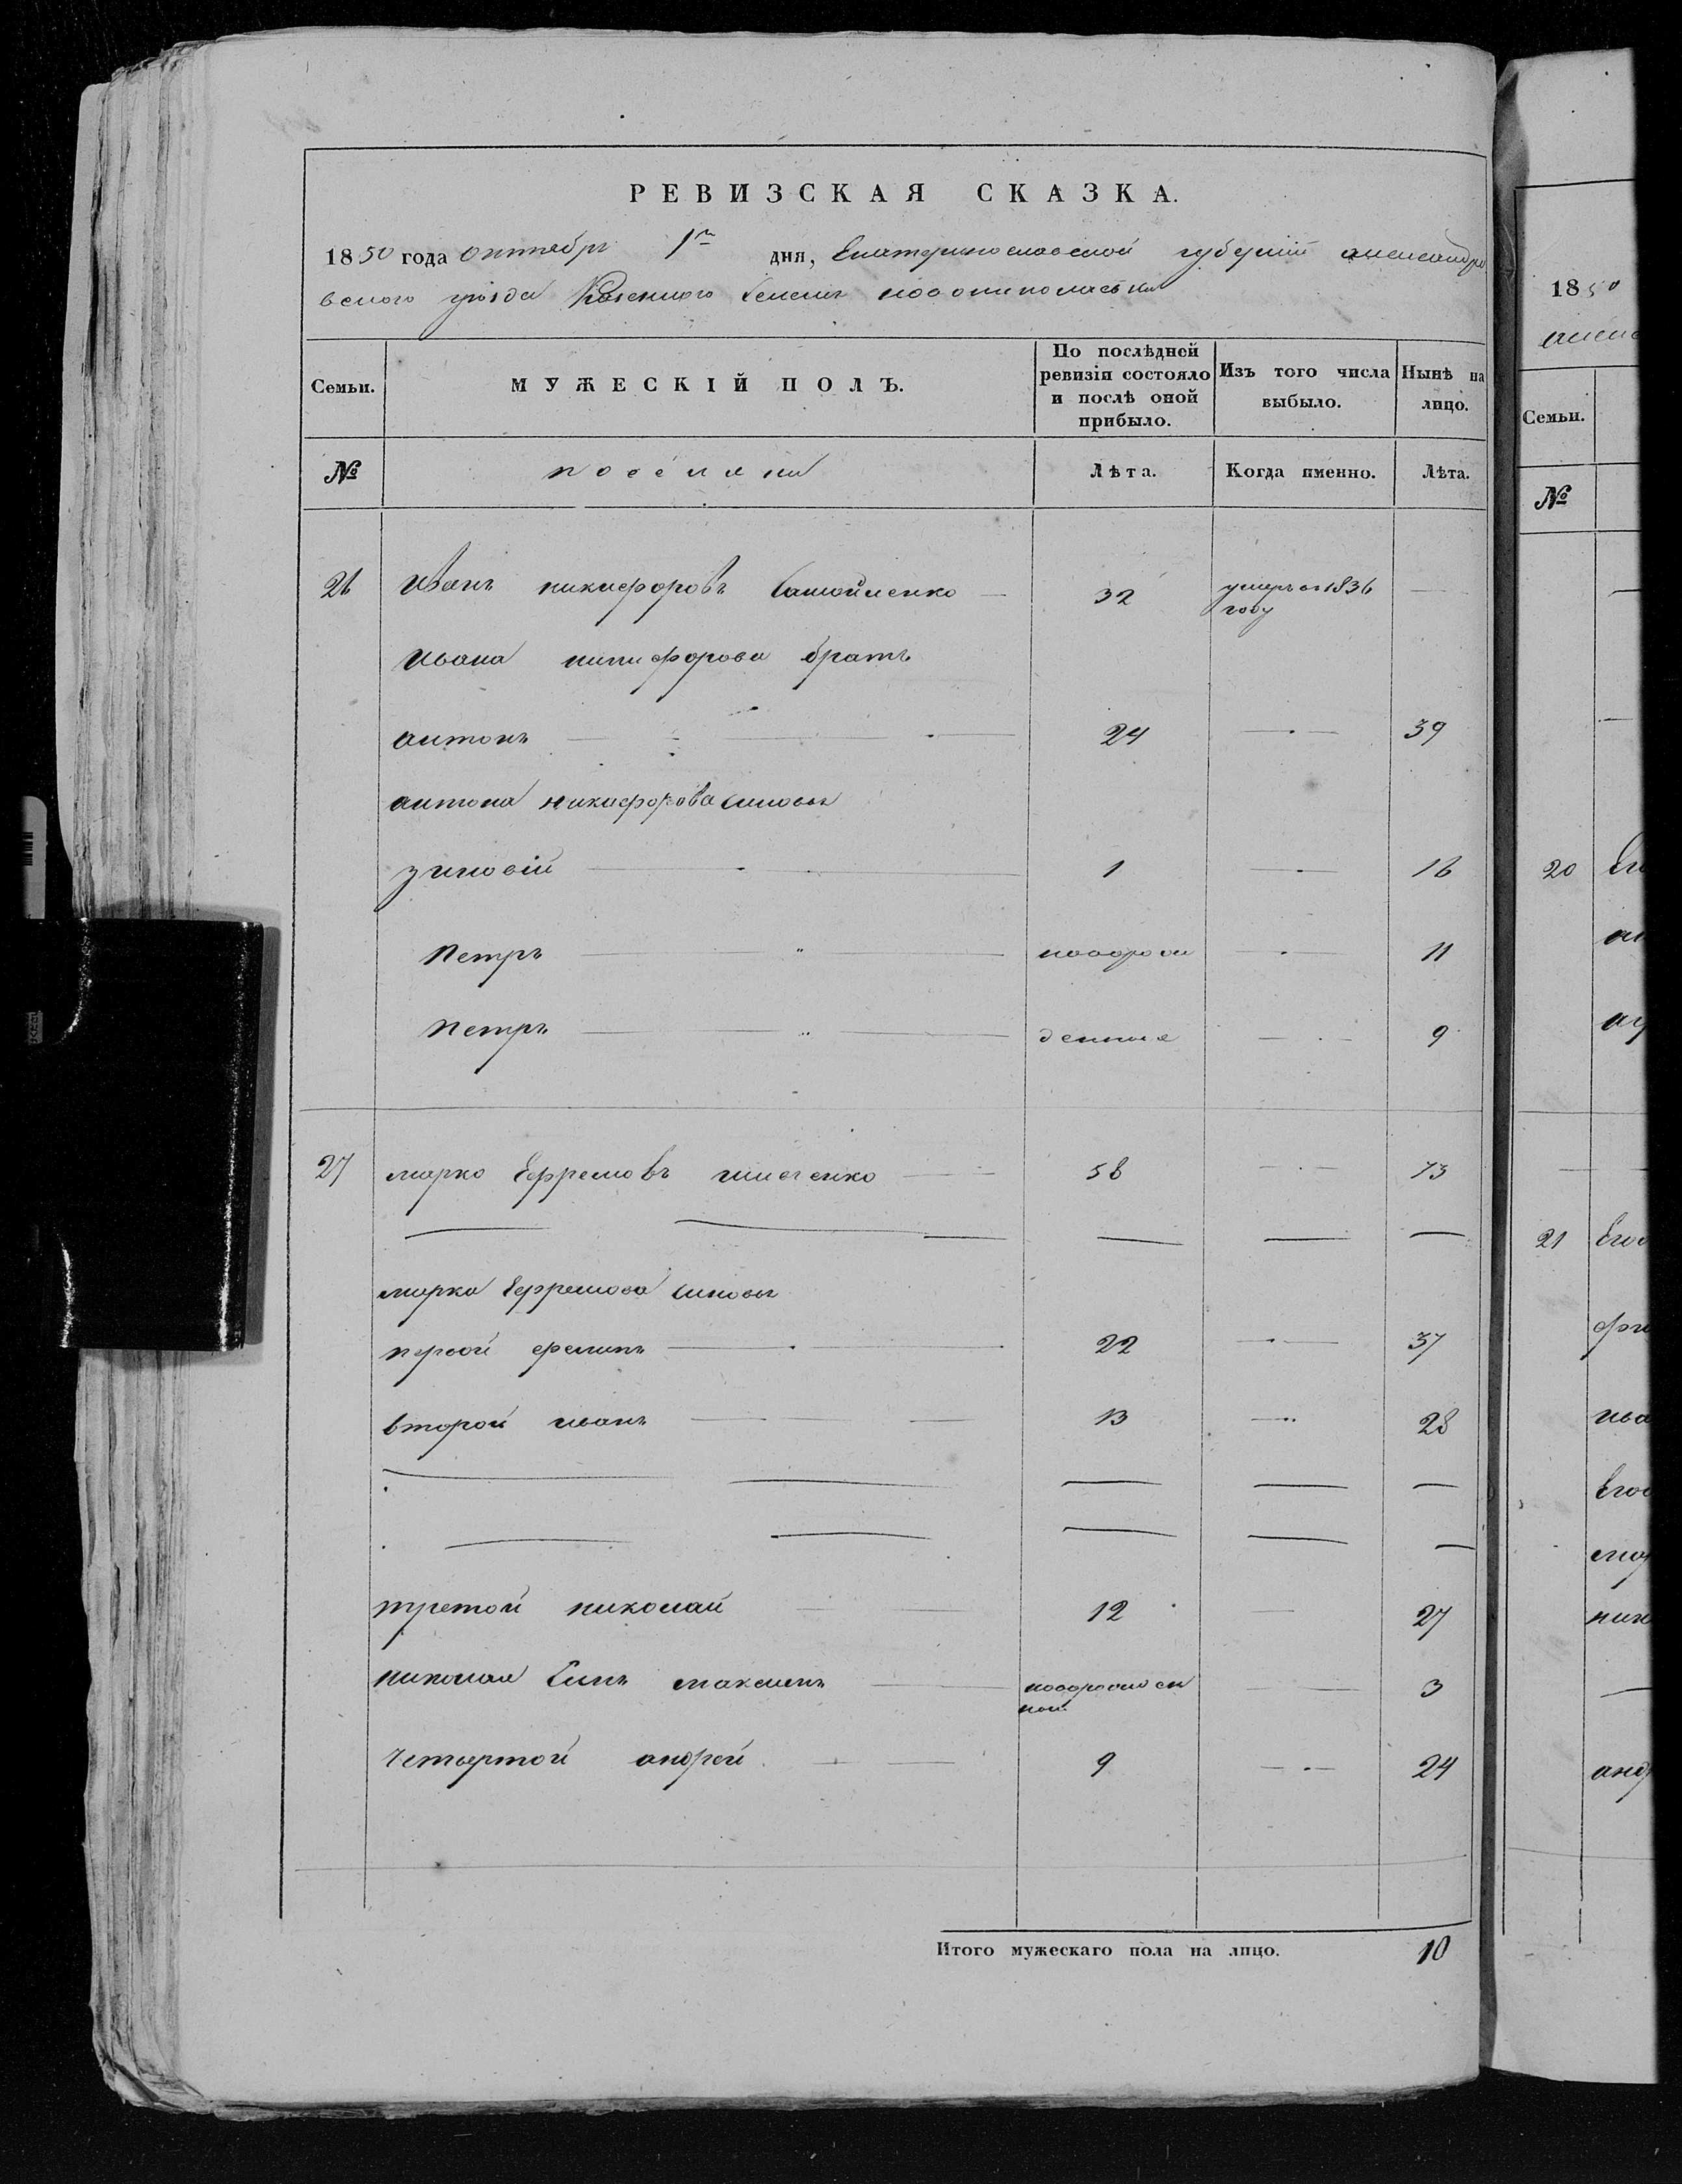 РЕВИЗСКАЯ СКАЗКА.
1850 года октябрь 1го дня, Екатеринославской губернии александро
вского уѣзда Казенного Селенія новониколаевки
Семьи. МУЖЕСКІЙ ПОЛЪ. По послѣдней ревизіи состояло и послѣ оной прибыло. Изъ того числа выбыло. Нынѣ на лицо.
№ поселяни Лѣта. Когда именно. Лѣта.
26 Иванъ никифоровъ Самойленко 32 умеръ въ 1836 году —
Ивана никифорова братъ
антонъ 24 — 39
антона никифорова сыновья
зиновій 1 — 16
Петръ новорож — 11
Петръ денныя — 9
27 марко Ефремовъ 58 — 73
марка Ефремова сыновья
первой филипъ 22 — 37
второй иванъ 13 — 28
третой николай 12 — 27
николая Сынъ максимъ новорожден ной — 3
четвертой андрей 9 — 24
Итого мужескаго пола на лицо. 10
1850
Семьи.
№
20
21